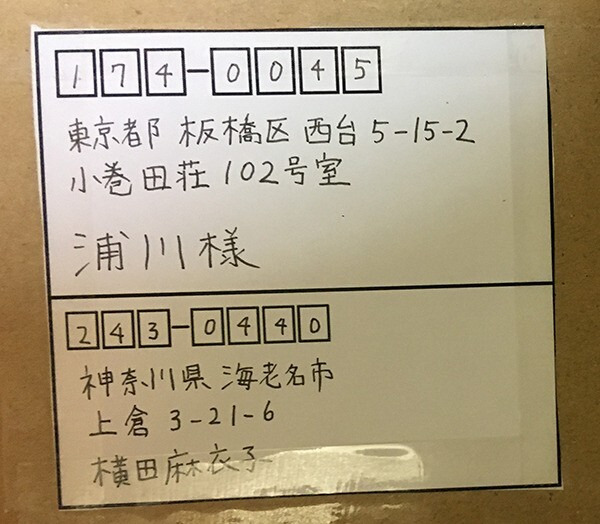 174-0045
東京都 板橋区 西台 5-15-2
小巻田荘 102号室
浦川様
243-0440
神奈川県 海老名市
上倉 3-21-6
横田麻衣子